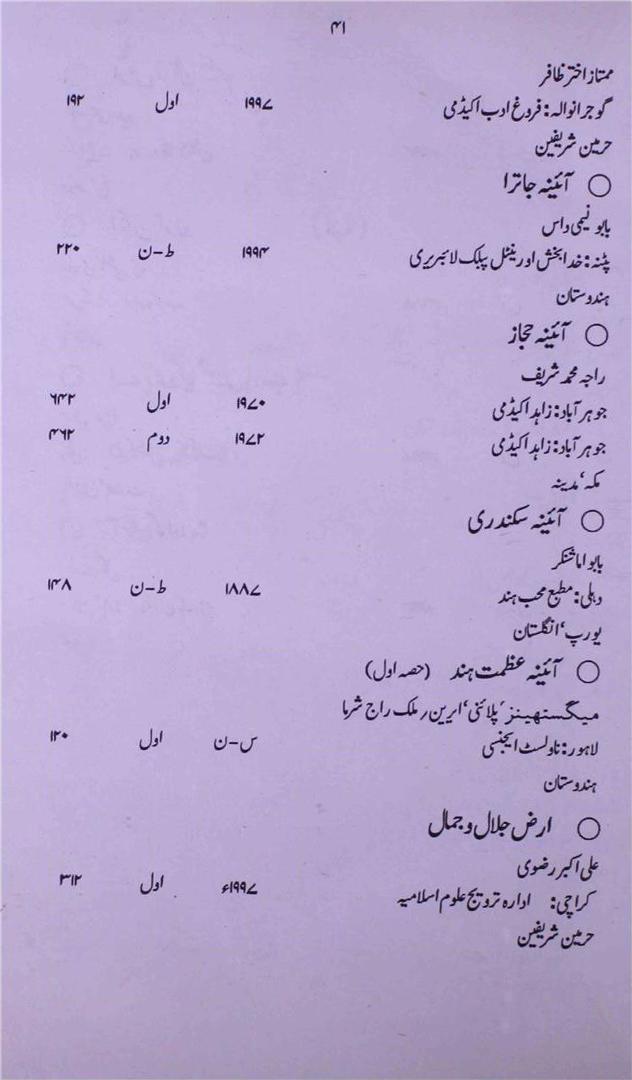 ۴۱
ممتاز اختر ظافر
گوجرانوالہ: فروغ ادب اکیڈمی ۱۹۹۷ اول ۱۹۲
حرمین شریفین
○ آئینہ جاترا
بابو نیمی داس
پٹنہ: خدا بخش اورینٹل پبلک لائبریری ۱۹۹۴ ط-ن ۲۲۰
ہندوستان
○ آئینہ حجاز
راجہ محمد شریف
جوہر آباد: زاہد اکیڈمی ۱۹۷۰ اول ۶۴۲
جوہر آباد: زاہد اکیڈمی ۱۹۷۲ دوم ۴۶۲
مکہ، مدینہ
○ آئینہ سکندری
بابو اماشنکر
دہلی: مطبع محب ہند ۱۸۸۷ ط-ن ۱۴۸
یورپ، انگلستان
○ آئینہ عظمت ہند (حصہ اول)
میگستھینز، پلائنی، ایرین / ملک راج شرما
لاہور: ناولسٹ ایجنسی س-ن اول ۱۲۰
ہندوستان
○ ارض جلال و جمال
علی اکبر رضوی
کراچی: ادارہ ترویج علوم اسلامیہ ۱۹۹۷ء اول ۳۱۲
حرمین شریفین